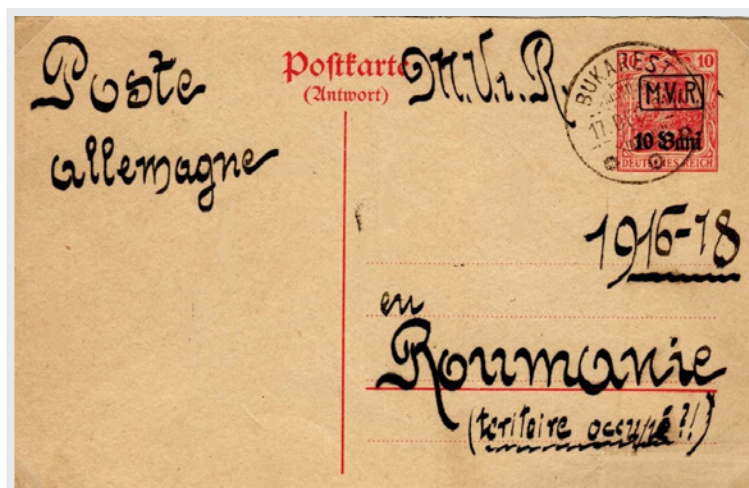 Poste
allemagne
Postkarte
(Antwort)
M.V.i.R.
BUKAREST
17.
10
M.V.i.R.
10 Bani
DEUTSCHES REICH
1916-18
en
Roumanie
(territoire occupé?!)